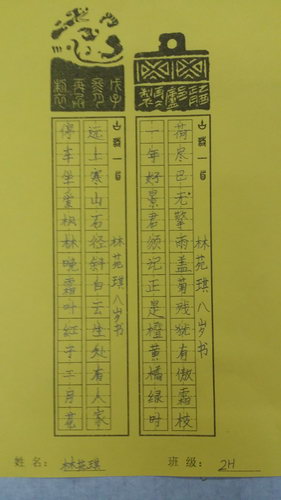 古诗一首 林苑琪八岁书
荷尽已无擎雨盖菊残犹有傲霜枝
一年好景君须记正是橙黄橘绿时
古诗一首 林苑琪八岁书
远上寒山石径斜白云生处有人家
停车坐爱枫林晚霜叶红于二月花
姓名: 林苑琪 班级: 2H